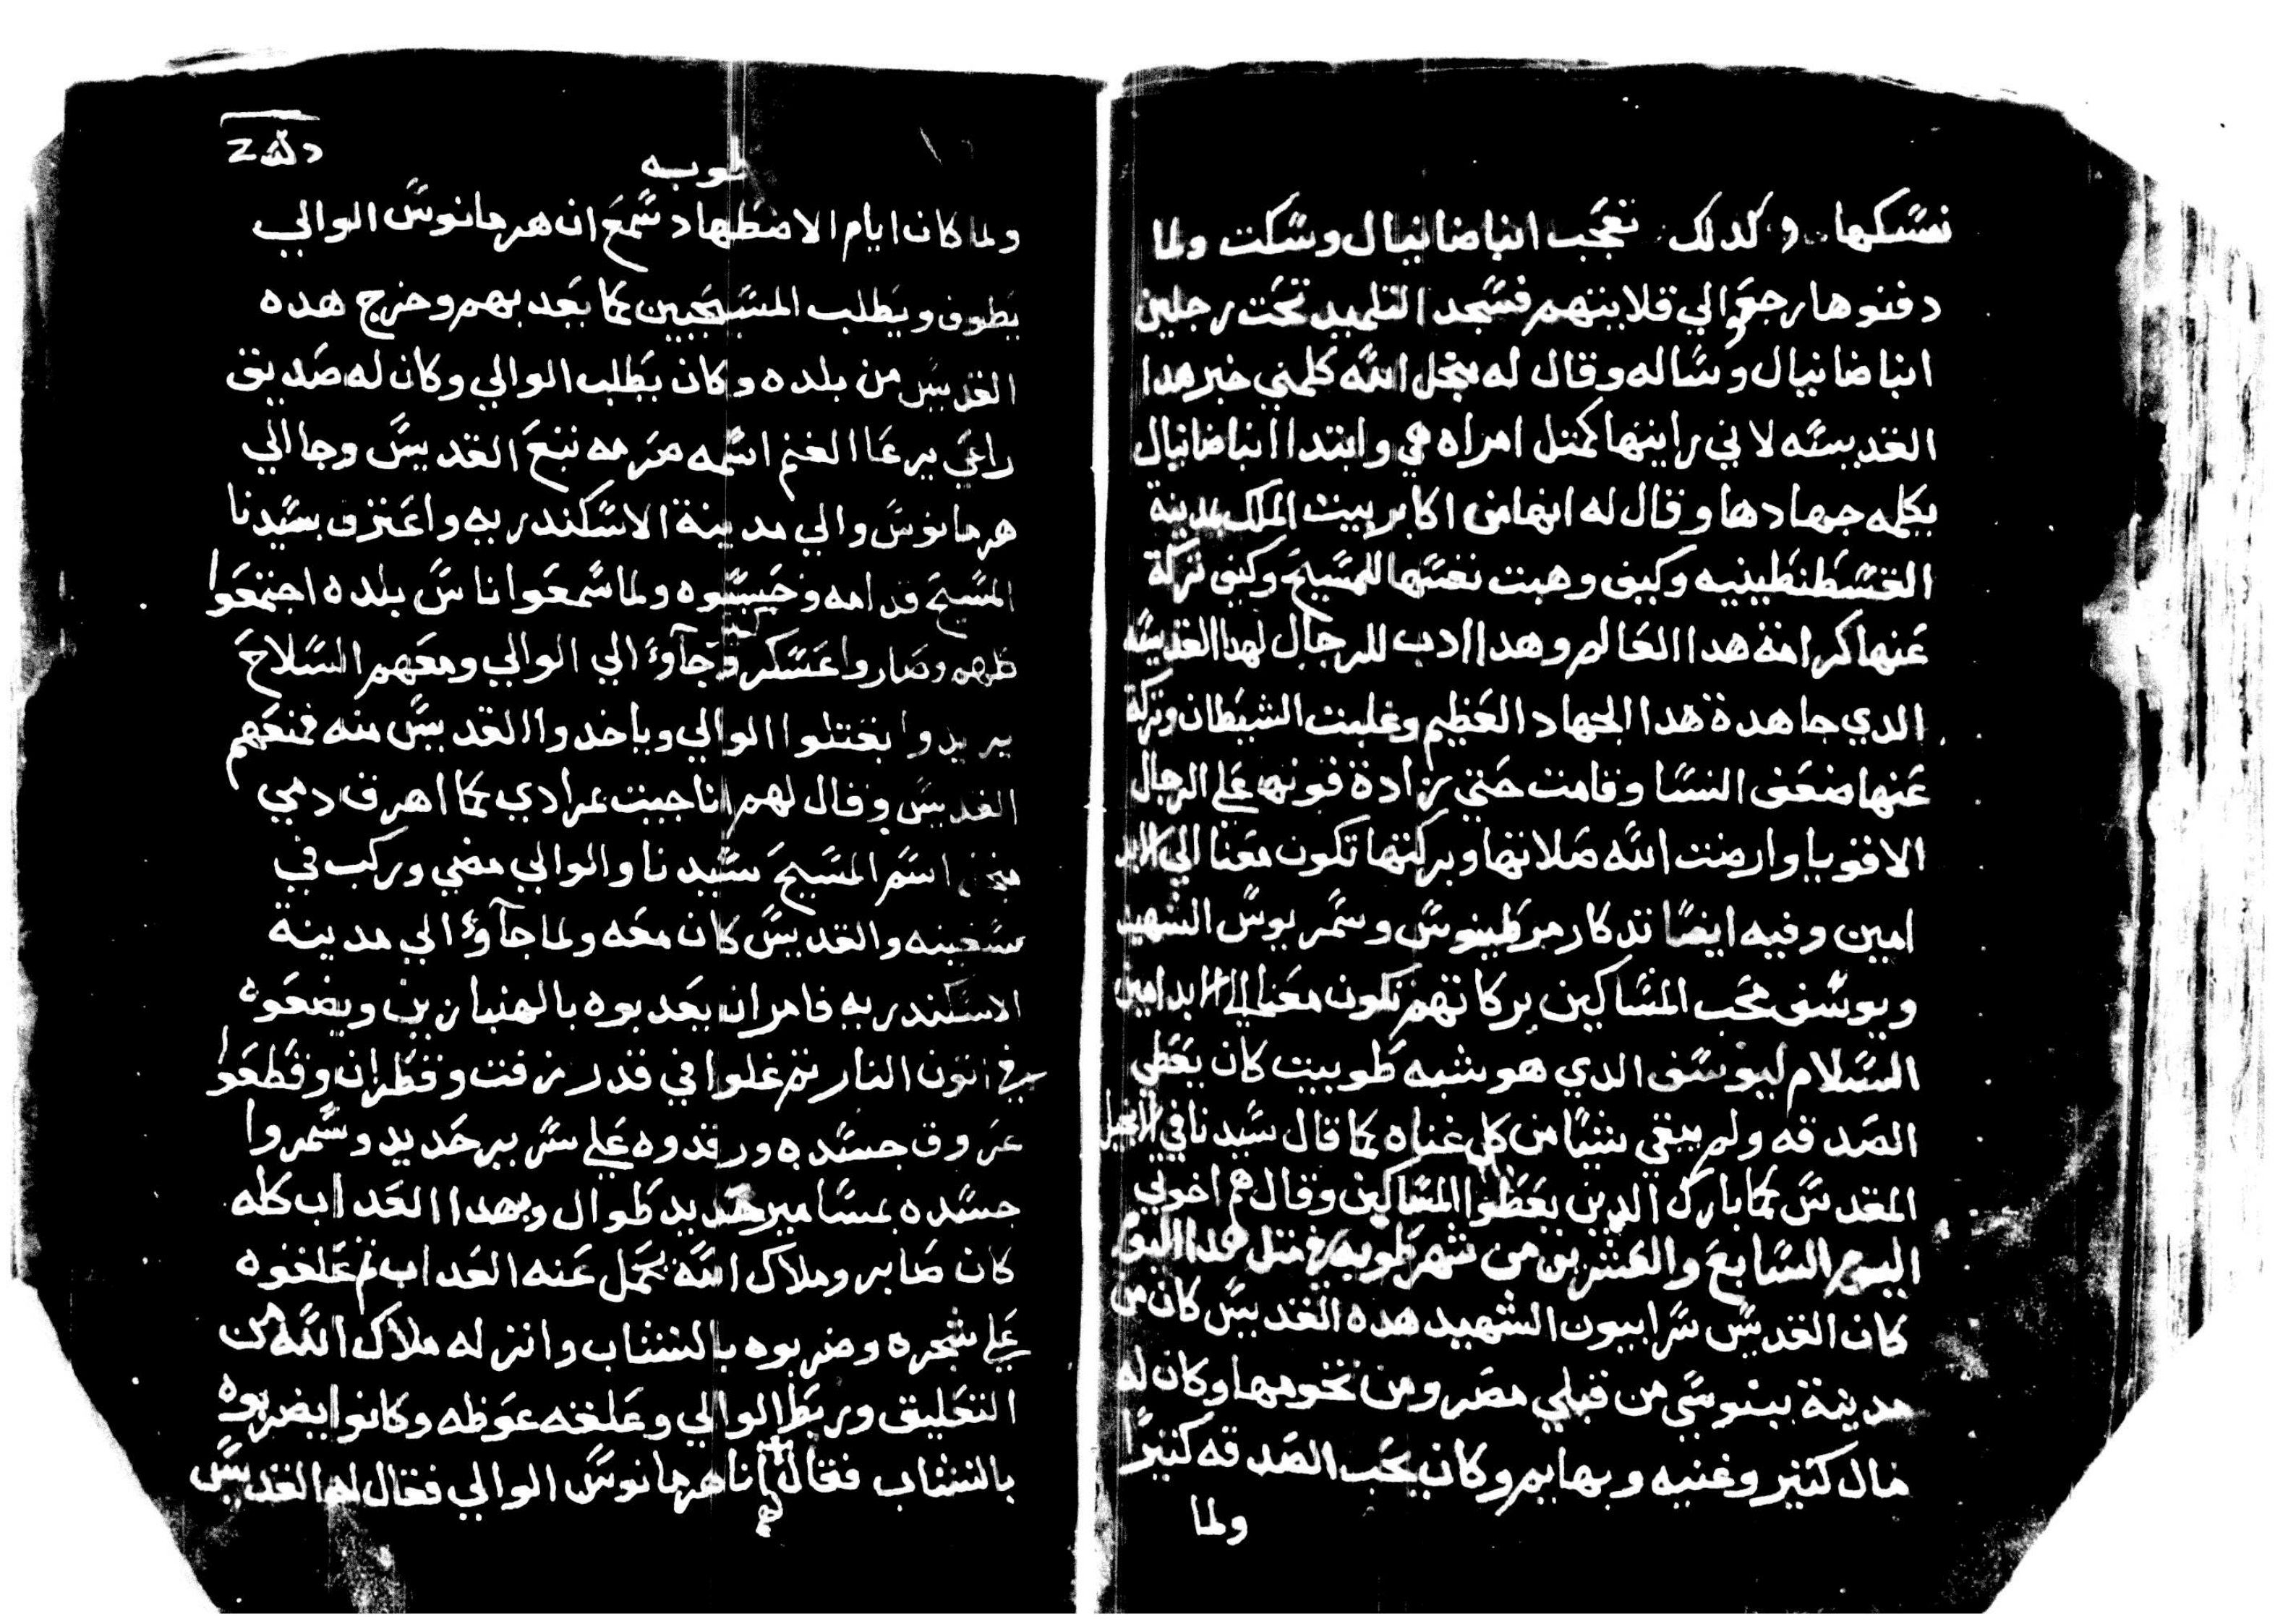 نسكها وكدلك تعجب انبا ضانيال وسكت ولما
دفنوها رجعوا الي قلايتهم فسجد التلميد تحت رجلين
انبا ضانيال وساله وقال له بتحل الله كلمني خبر هدا
القديسه لاني رايتها كمتل امراه هي وابتدا انبا ضانيال
يكلمه جهادها وقال له انها من اكابر بيت الملك بمدينة
القسطنطينيه وكيف وهبت نفسها للمسيح وكيف تركة
عنها كرامة هدا العالم وهدا ادب للرجال لهدا القديسه
الدي جاهدة هدا الجهاد العظيم وغلبت الشيطان وتركة
عنها ضعف النسا وقامت حتي زادة قوته علي الرجال
الاقويا وارضت الله صلاتها وبركتها تكون معنا الي الابد
امين وفيه ايضا تدكار مرطينوس وسمريوس الشهيد
ويوسف محب المساكين بركاتهم تكون معنا الي الابد امين
السلام ليوسف الدي هو شبه طوبيت كان يعطي
الصدقه ولم يبقي شيا من كل غناه كما قال سيدنا في الانجيل
المقدس كما بارك الدين يعطوا المساكين وقال هم اخوتي
اليوم السابع والعشرين من شهر طوبه في متل هدا اليوم
كان القديس سرابيون الشهيد هده القديس كان من
مدينة بينوسي من قبلي مصر ومن تخومها وكان له
مال كتير وغنيه وبهايم وكان يحب الصدقه كتيرا
ولما
طوبه
ولما كان ايام الاضطهاد سمع ان هرمانوس الوالي
يطوف ويطلب المسيحيين كما يعدبهم وخرج هده
القديس من بلده وكان يطلب الوالي وكان له صديق
راعي يرعا الغنم اسمه تبع القديس وجا الي
هرمانوس والي مدينة الاسكندريه واعترف بسيدنا
المسيح قدامه وحبسوه ولما سمعوا ناس بلده اجتمعوا
كلهم وصاروا عسكر وجآؤ الي الوالي ومعهم السلاح
يريدوا يقتلوا الوالي وياخدوا القديس منه فمنعهم
القديس وقال لهم انا جيت بمرادي كما اهرق دمي
اسم المسيح سيدنا والوالي مضي وركب في
سفينه والقديس كان معه ولما جآؤ الي مدينة
الاسكندريه فامر ان يعدبوه بالهنبازين ويضعوه
في اتون النار تم غلوا في قدر زفت وقطران وقطعوا
عروق جسده ورقدوه علي سرير حديد وسمروا
جسده بمسامير حديد طوال وبهدا العداب كله
كان صابر وملاك الله يحمل عنه العداب تم علقوه
علي شجره وضربوه بالنشاب وانزله ملاك الله من
التعليق وربط الوالي وعلقه عوضه وكانوا يضربوه
بالنشاب فقال لهم انا هرمانوس الوالي فقال له القديس